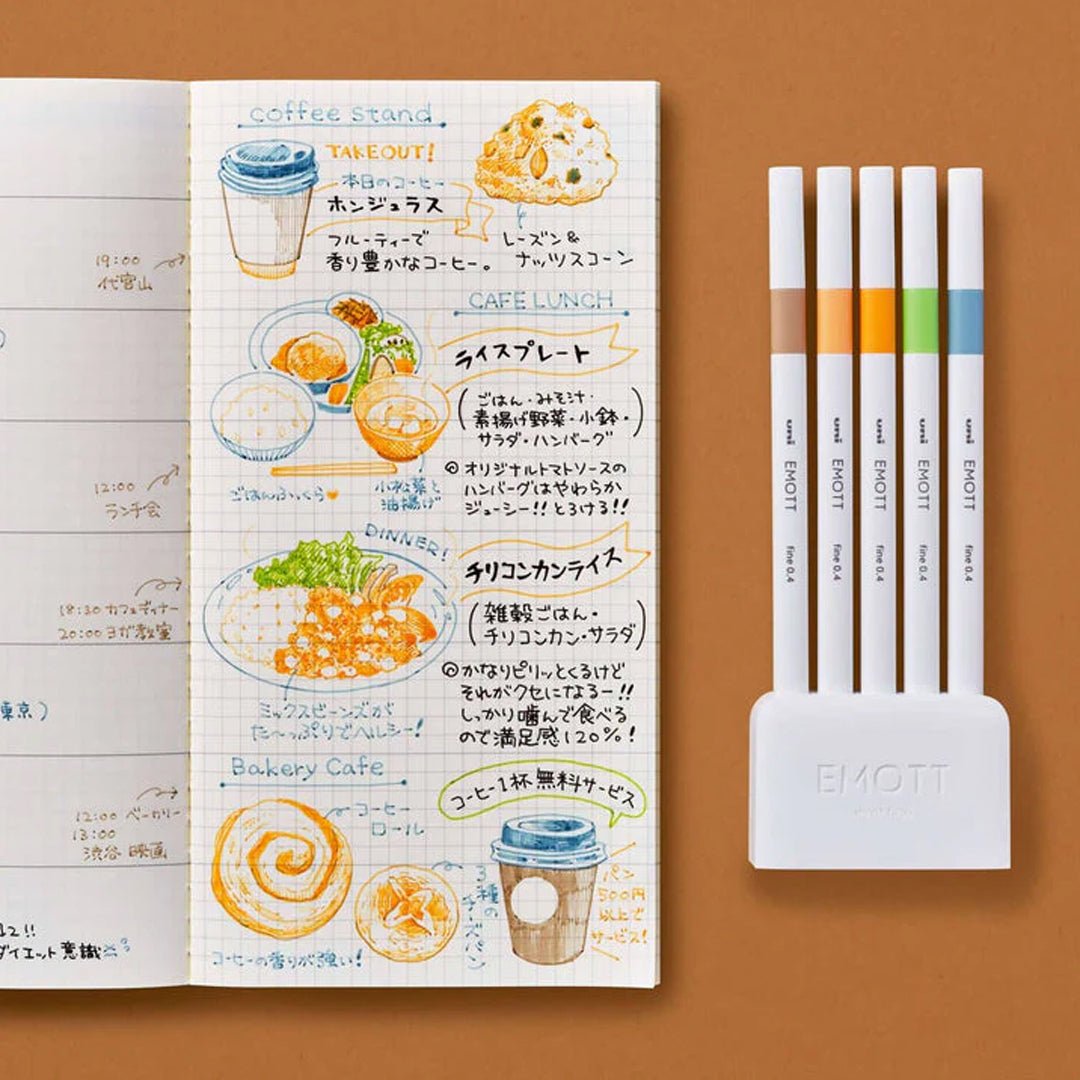 19:00
代官山
12:00
ランチ会
18:30 カフェディナー
20:00 ヨガ教室
東京)
12:00 ベーカリー
13:00
渋谷 映画
ダイエット意識
coffee stand
TAKEOUT!
本日のコーヒー
ホンジュラス
フルーティーで
香り豊かなコーヒー。
レーズン&
ナッツスコーン
CAFE LUNCH
ライスプレート
(ごはん・みそ汁・
素揚げ野菜・小鉢・
サラダ・ハンバーグ)
◎オリジナルトマトソースの
ハンバーグはやわらか
ジューシー!!とろける!!
ごはんふっくら♥
小松菜と
油揚げ
DINNER!
チリコンカンライス
(雑穀ごはん・
チリコンカン・サラダ)
◎かなりピリッとくるけど
それがクセになるー!!
しっかり噛んで食べる
ので満足感120%!
ミックスビーンズが
た〜っぷりでヘルシー!
Bakery Cafe
コーヒー
ロール
コーヒー1杯無料サービス
3種の
チーズパン
パン
500円
以上で
サービス!
コーヒーの香りが強い!
uni EMOTT fine 0.4
uni EMOTT fine 0.4
uni EMOTT fine 0.4
uni EMOTT fine 0.4
uni EMOTT fine 0.4
EMOTT